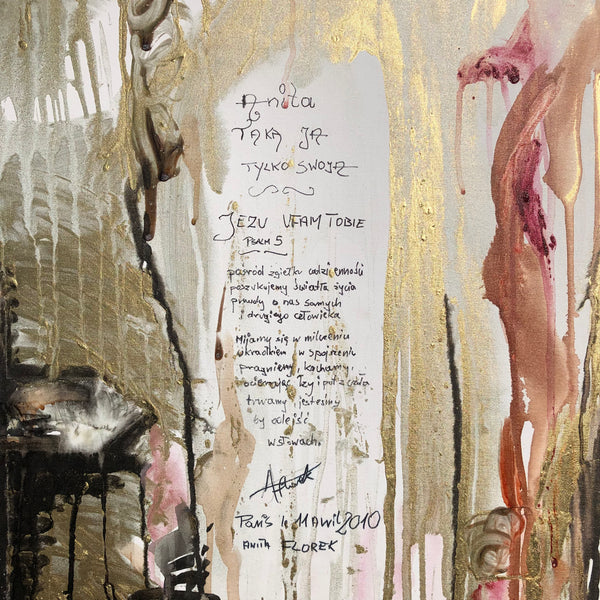 Anita
TAKA JA
TYLKO SWOJA
JEZU UFAM TOBIE
PSALM 5
pośród zgiełku codzienności
poszukujemy światła życia
prawdy o nas samych
i drugiego człowieka
Mijamy się w milczeniu
ukradkiem w spojrzeniu
Pragniemy, kochamy
ocierając łzy i pot z czoła
trwamy, jesteśmy
by odejść
w słowach.
Paris 2010
ANITA FLOREK